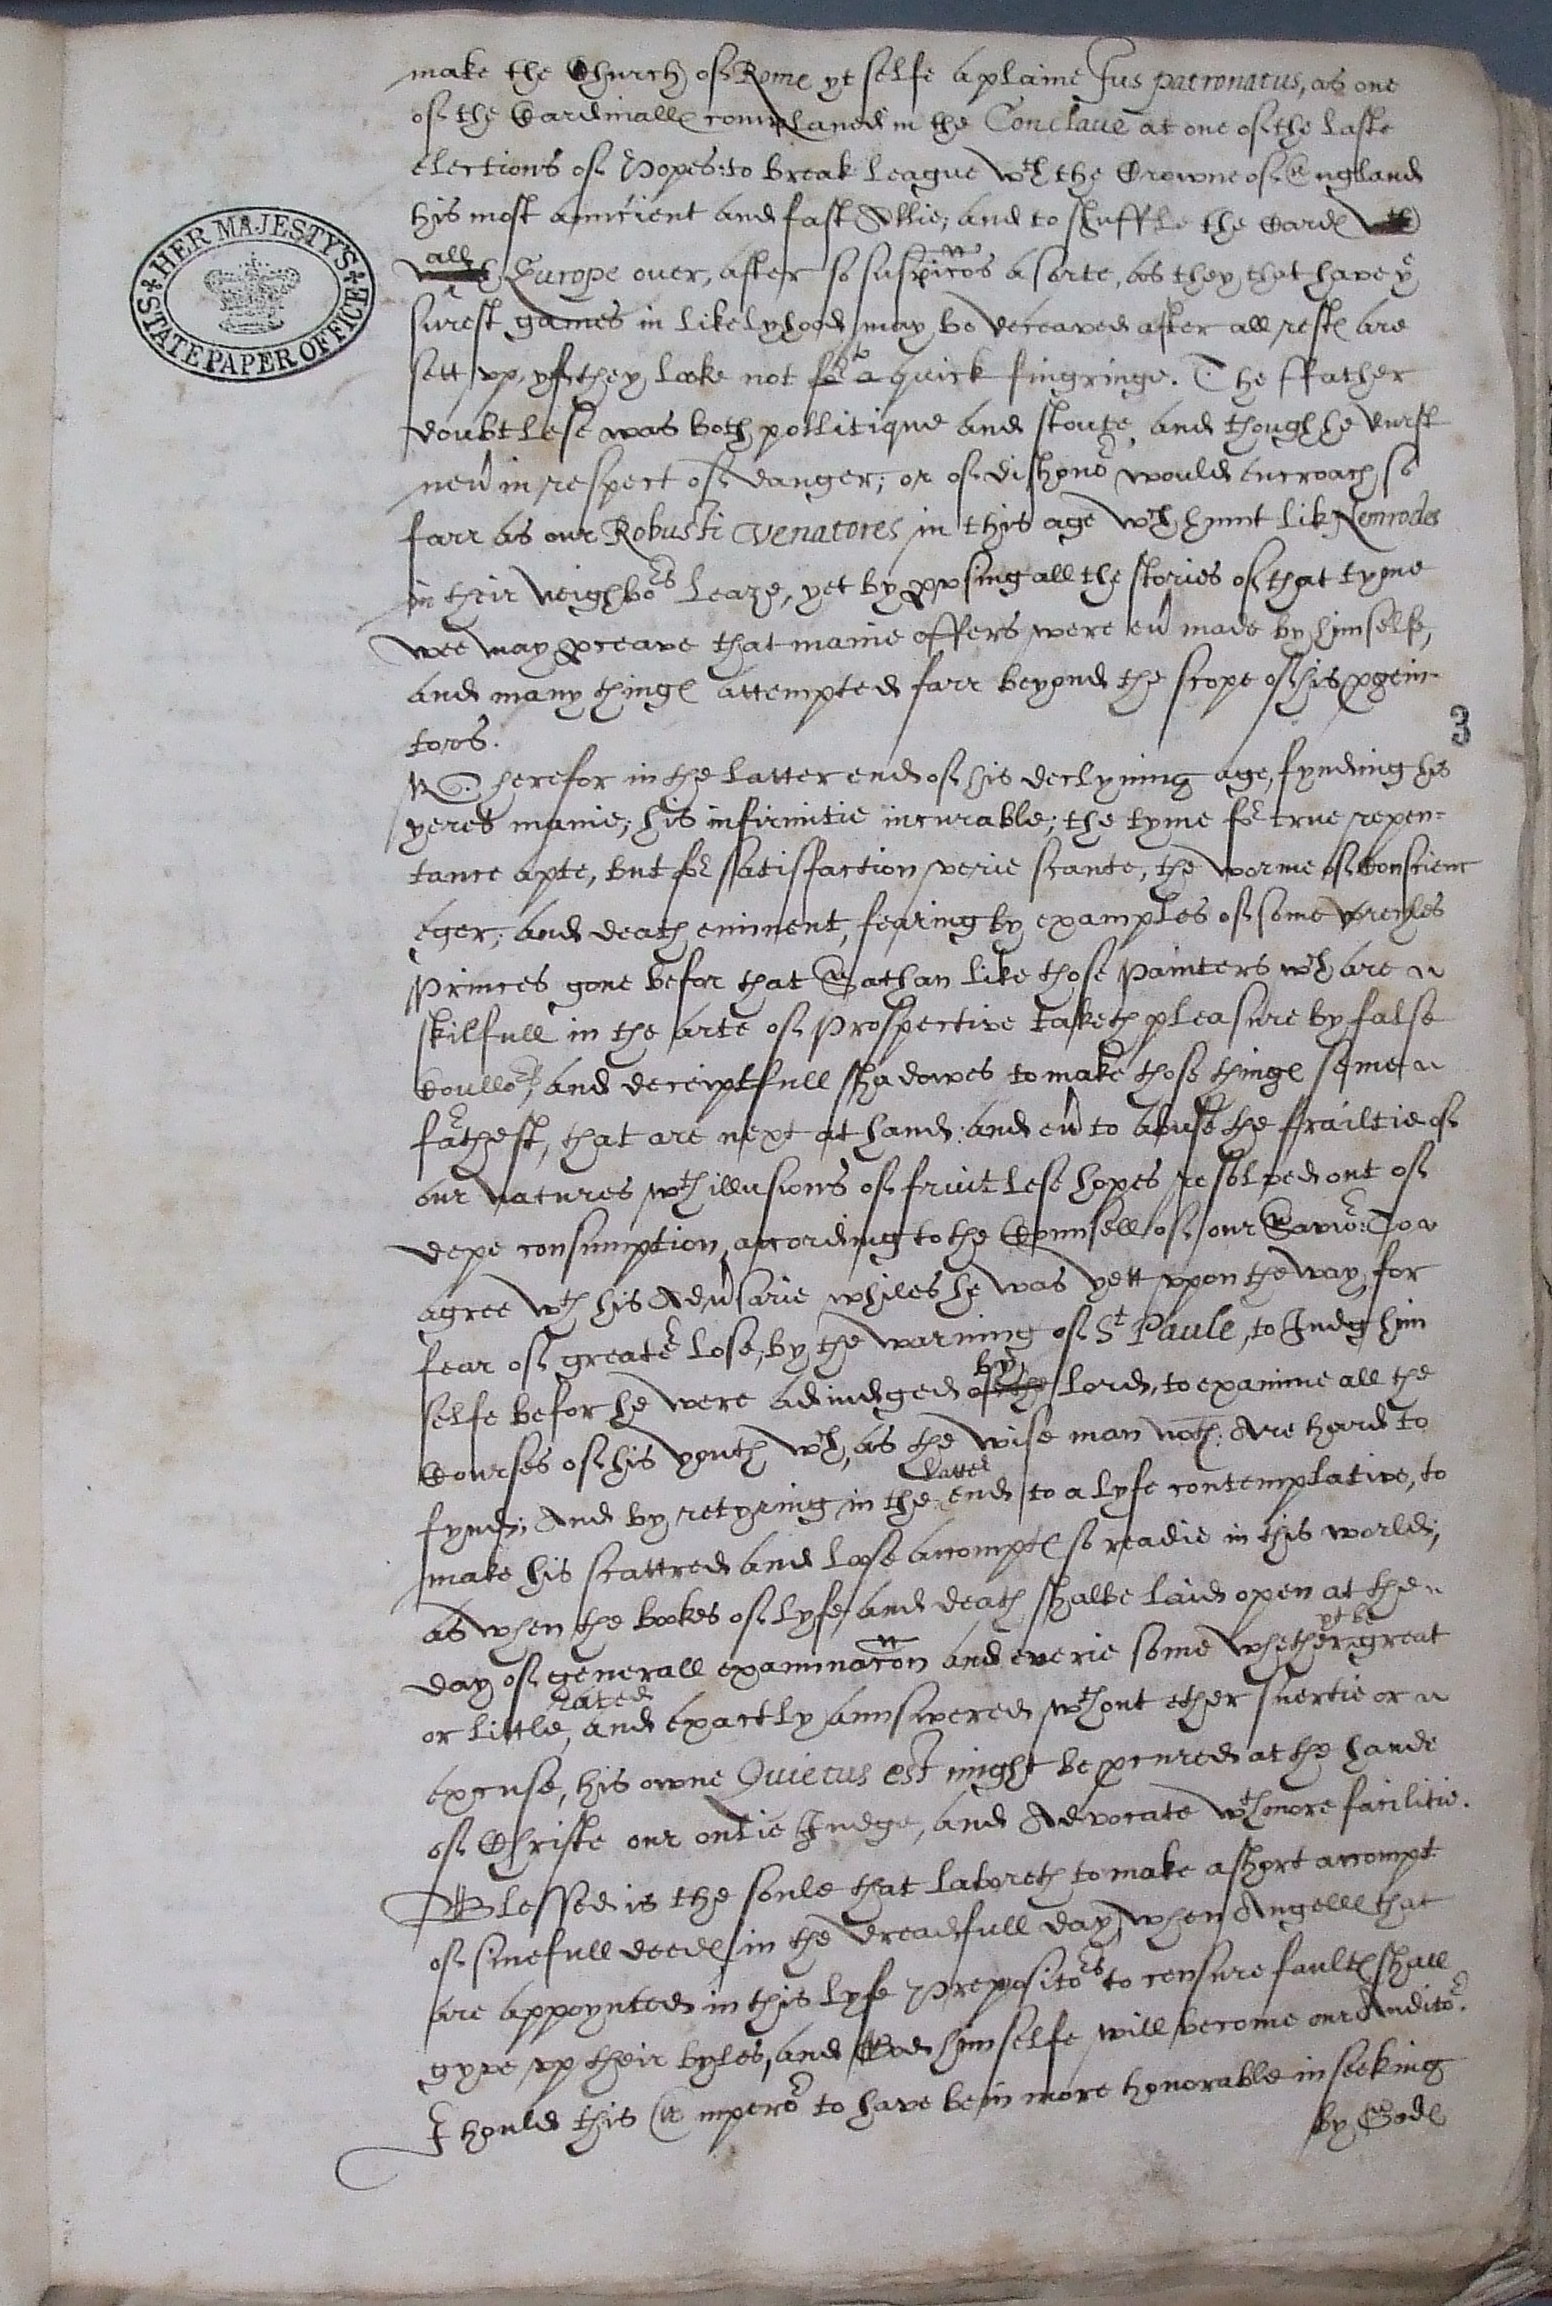 make the Church of Rome yt selfe a plaine Jus patronatus, as one
of the Cardinalles complaned in the Conclaue at one of the laste
elections of Popes: to break league wth the Crowne of England
his most auncient and fast Allie; and to shuffle the Cardes
all Europe ouer, after so suspicos a sorte, as they that haue ye
surest games in likelyhood may be deceaued after all restes are
sett vp, yf they looke not to a quick fingringe. The ffather
doubtlese was both pollitique and stoute, and though he durst
neu in respect of danger; or of dishonor would encroach so
farr as our Robusti venatores in this age wch hunt lik Nemrodes
in their Neighbors Leaze, yet by pvsing all the stories of that tyme
wee may pceave that manie offers were eu made by himselfe,
and many thinges attempted farr beyond the scope of his pgeni-
tors.
Wherefor in the latter end of his declyning age, fynding his
yeres manie; his infirmitie incurable; the tyme for true repen-
tance apte, but for satisfaction verie scante, the worme of Conscienc
eger; and death eminent, fearing by examples of some
Princes gone befor that Sathan like those Painters wch are
skilfull in the arte of Prospective taketh pleasure by false
Coullors, and deceiptfull shadowes to make those thinges seme
farthest, that are next at hand: and eu to abuse the frailtie of
our natures wth illusions of fruitlese hopes resolved out of
depe consumption, according to the Counsell of our Savior: To
agree wth his Aduersarie whiles he was yett vpon the way, for
fear of greater lose, by the warning of St Paule, to Iudg him
selfe befor he were adiudged of the by lord, to examine all the
Courses of his youth wch, as the wise man noth: Are hard to
fynd; And by retyring in the latter end to a lyfe contemplative, to
make his scattred and loose accomptes so readie in this world,
as when the bookes of lyfe and death shalbe laid open at the
day of generall examinacon and everie some whether yt be great
or little, rated and exactly annswered wthout ether suertie or
excuse, his owne Quietus est might be pcured at the hande
of Christe our onlie Iudge, and Advocate wth more facilitie.
Blessed is the soule that laboreth to make a short accompt
of sinefull deedes in the dreadfull day, when Angelles that
are appoynted in this lyfe Prepositors to censure faultes shall
gyve vp their byles, and God himselfe will become our Auditor.
I hould this Emperor to have bein more honorable in seeking
by Godes
3
HER MAJESTY'S
STATE PAPER OFFICE